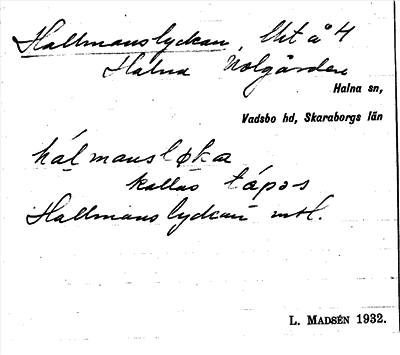 Hallmanslyckan, Utå 4
Halna Nolgården
Halna sn,
Vadsbo hd, Skaraborgs län
hálmansløka
kallas tápəs
Hallmanslyckan
L. MADSÉN 1932.